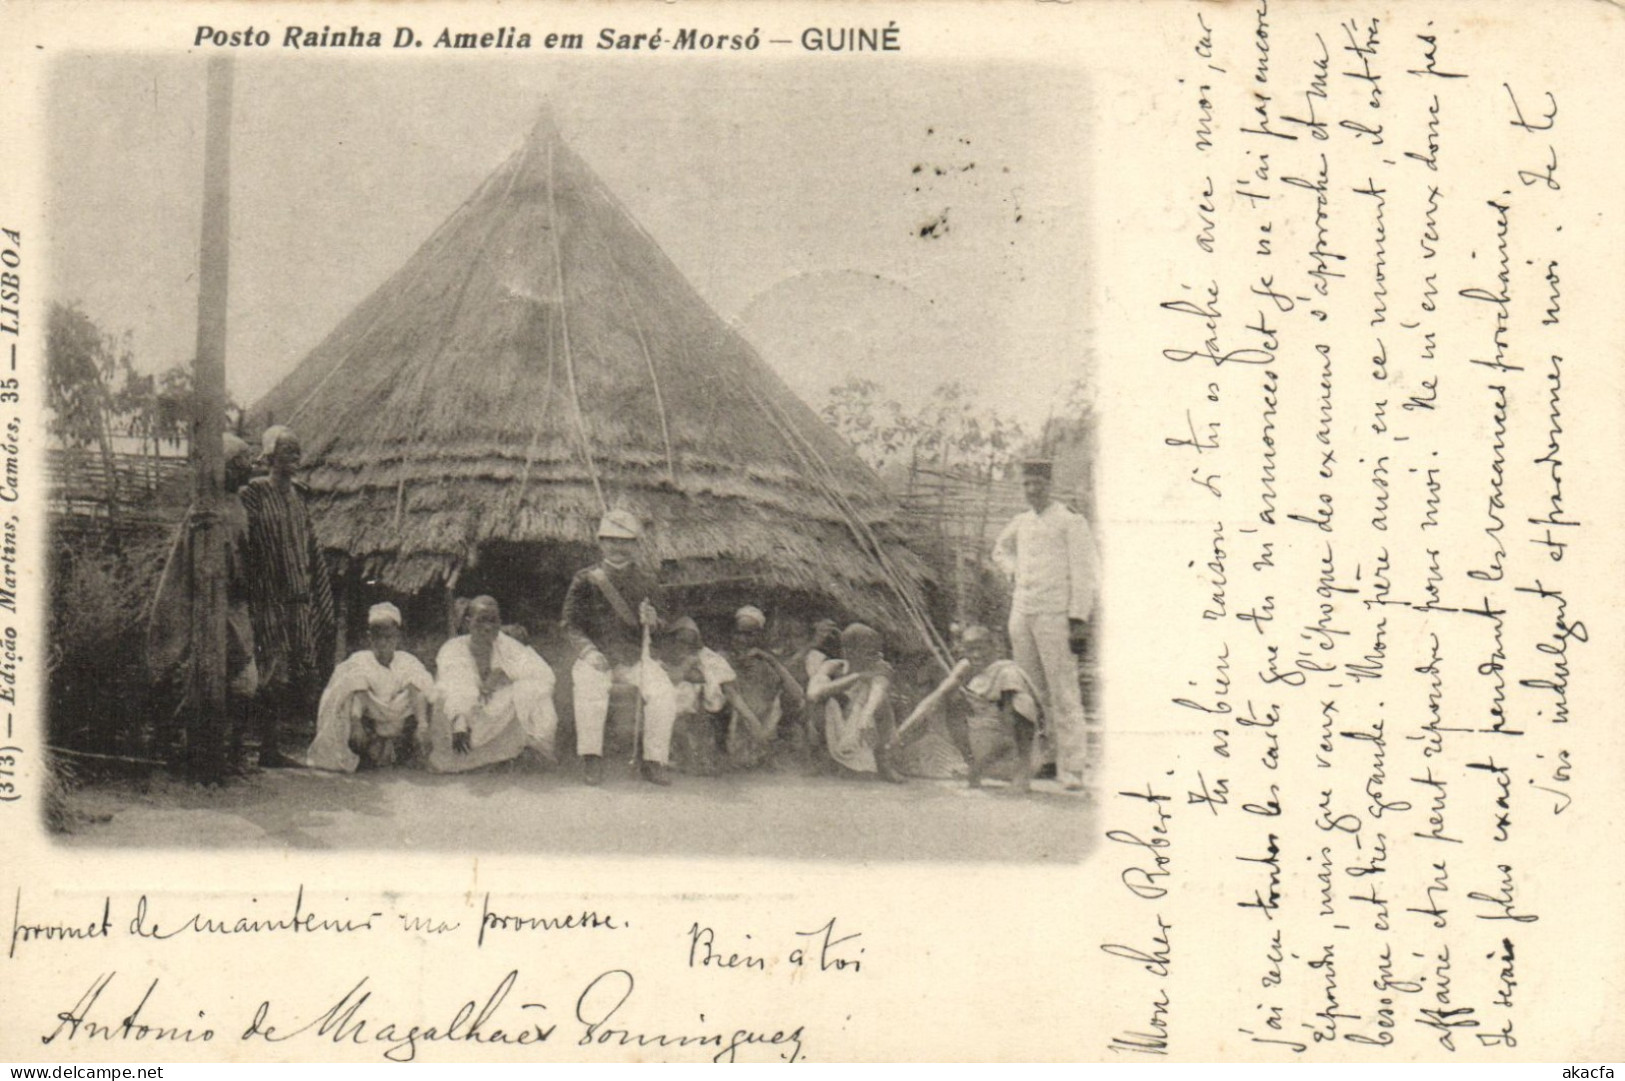 Posto Rainha D. Amelia em Saré-Morsó — GUINÉ
(373) — Edição Martins, Camões, 35 — LISBOA
Mon cher Robert.
Tu as bien raison si tu es faché avec moi, car
j'ai reçu toutes les cartes que tu m'annonces et je ne t'ai pas encore
répondu, mais que veux, l'époque des examens s'approche et ma
besogne est très grande. Mon père aussi en ce moment, il est très
affairé et ne peut répondre pour moi. Ne m'en veux donc pas.
Je serais plus exact pendant les vacances prochaines.
Sois indulgent et pardonnes moi. Je te
promet de maintenir ma promesse.
Bien à toi
Antonio de Magalhães Dominguez
akacfa